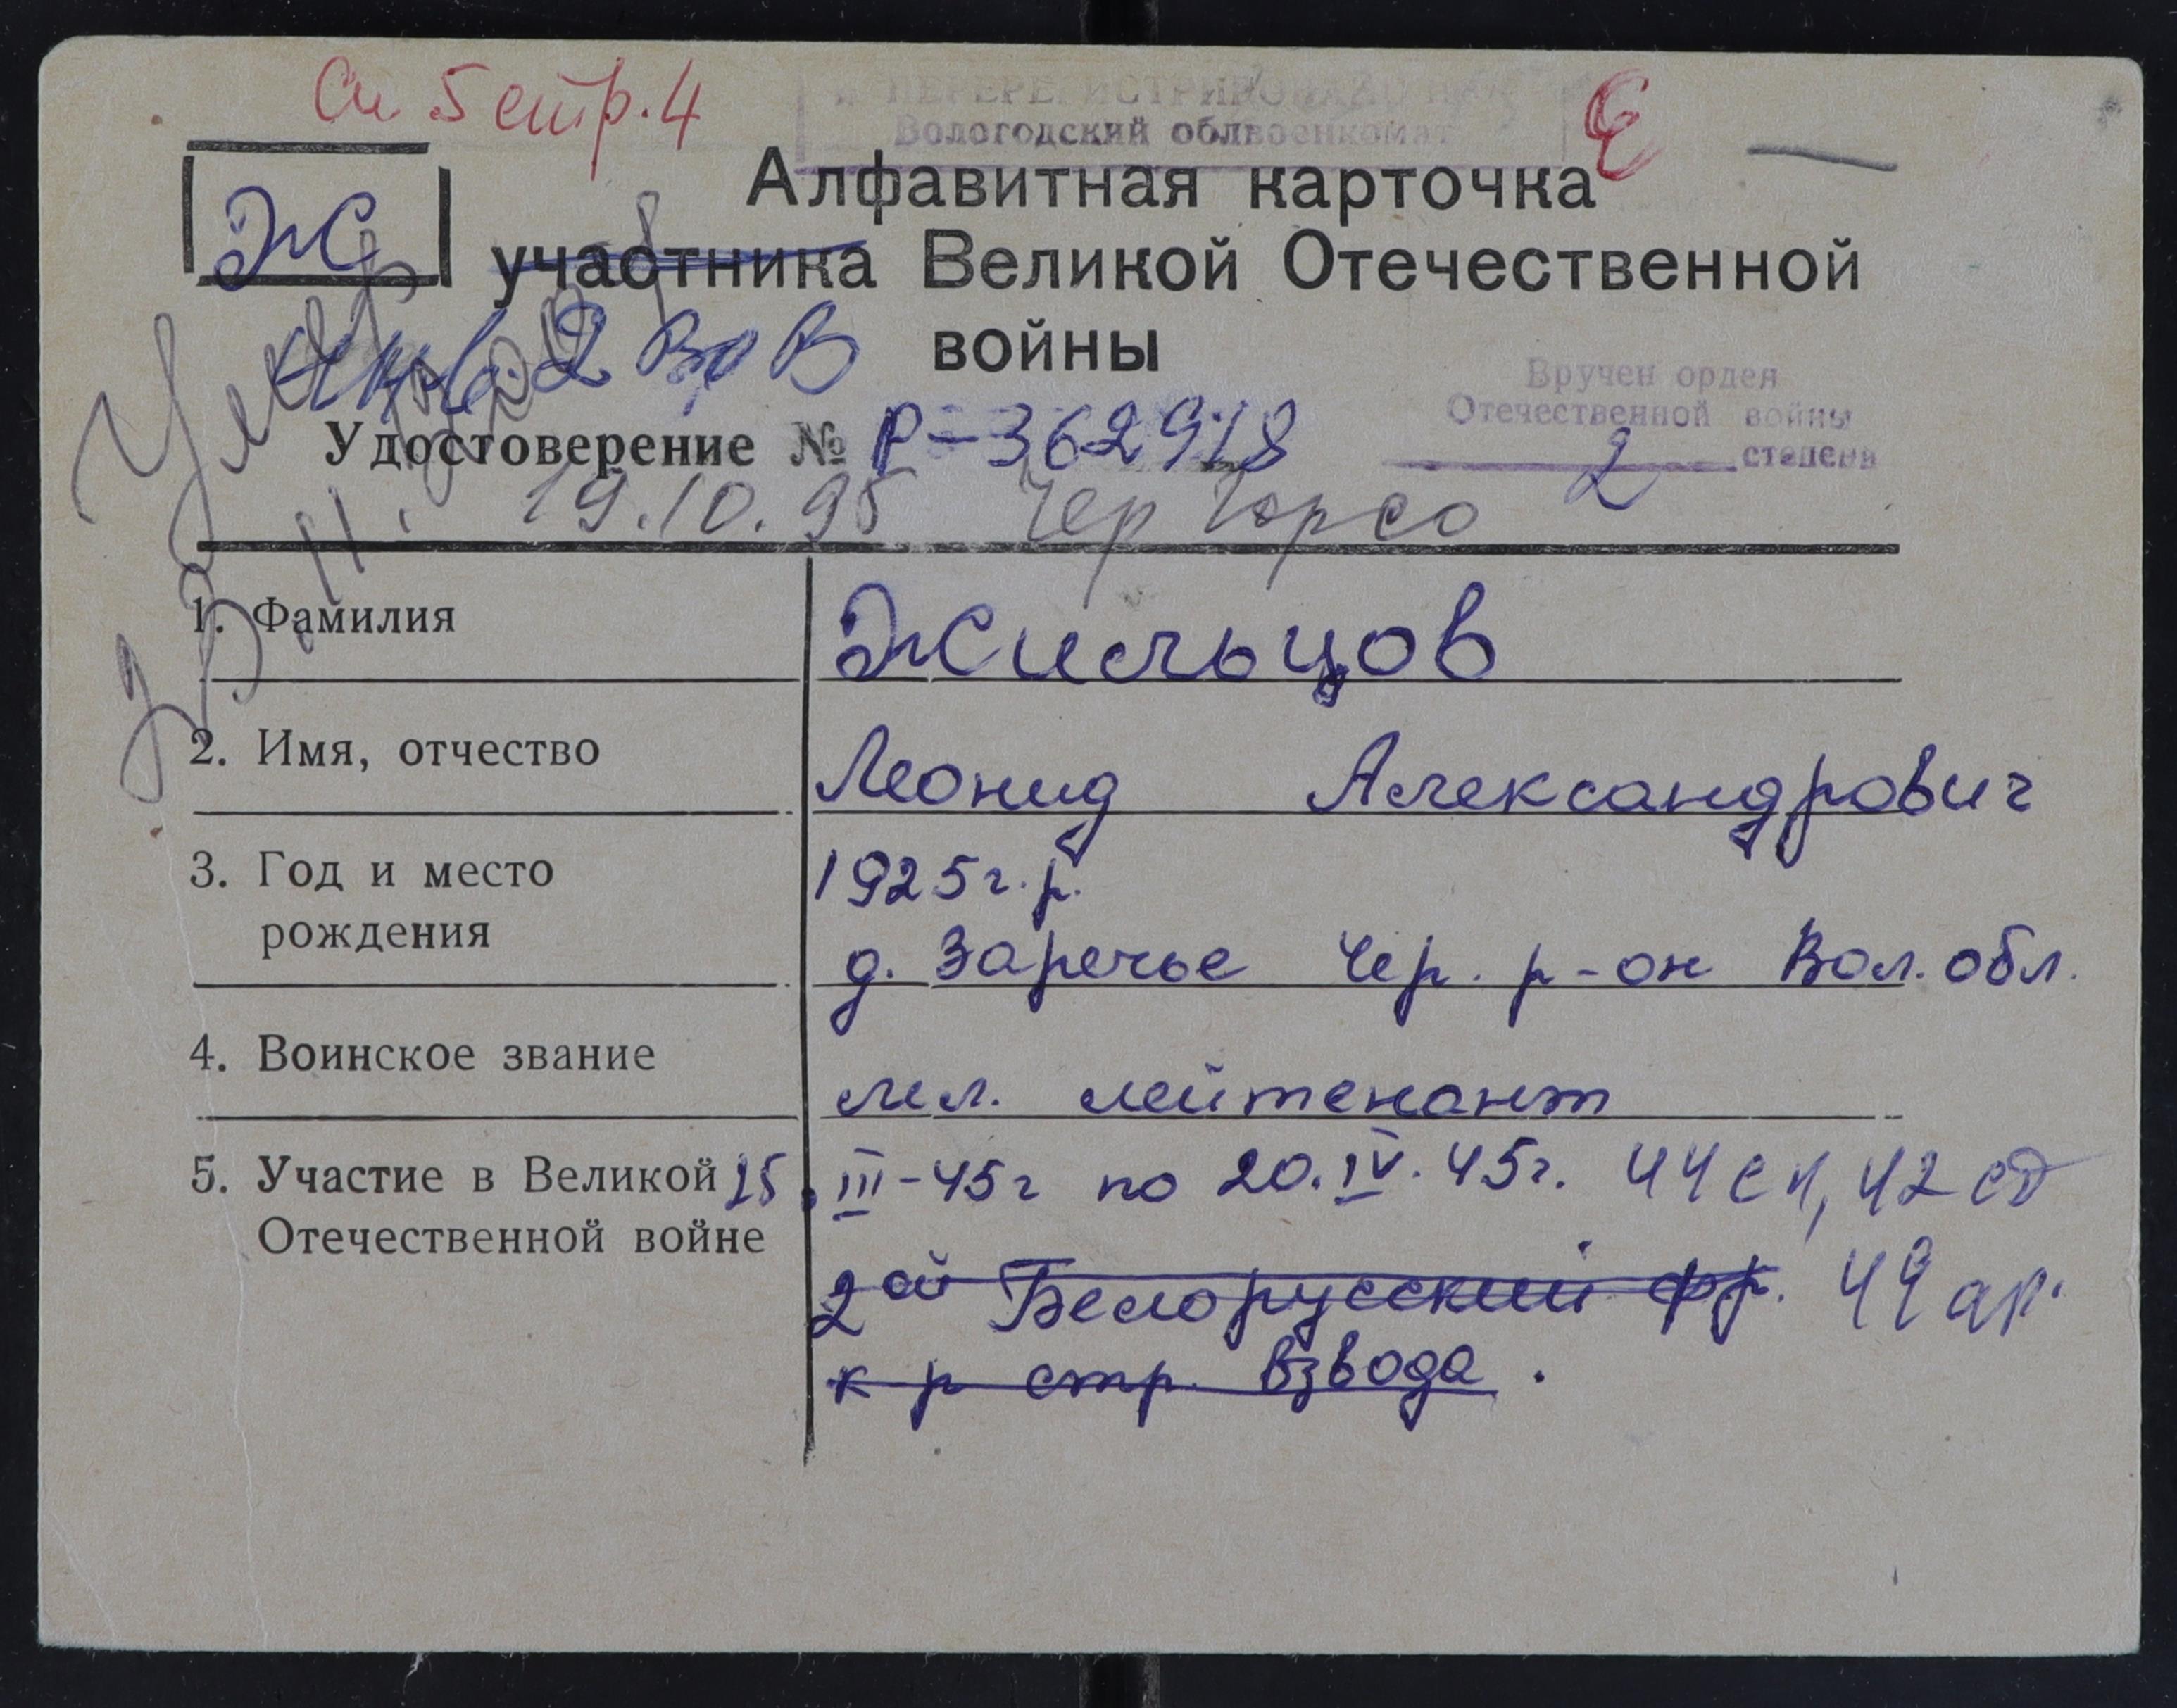 См 5 стр. 4
ПЕРЕРЕГИСТРИРОВАНО
Вологодский облвоенкомат
Е
Ж
Алфавитная карточка
участника Великой Отечественной
Инв. 2 ВОВ
войны
Умер
Вручен орден
Отечественной войны
2 степени
Удостоверение № Р-362918
19.10.95 Чер Горсо
1. Фамилия Жильцов
2. Имя, отчество Леонид Александрович
3. Год и место 1925г.р.
рождения д. Заречье Чер. р-он Вол. обл.
4. Воинское звание мл. лейтенант
5. Участие в Великой 25. III-45г по 20.IV.45г. 44 сп, 42 сд
Отечественной войне
2ой Белорусский фр. 49 ар.
к-р стр. взвода.